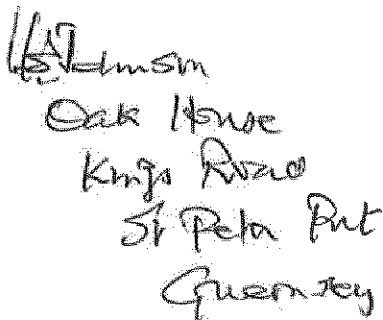 Johnson
Oak House
Kings Road
St Peter Port
Guernsey